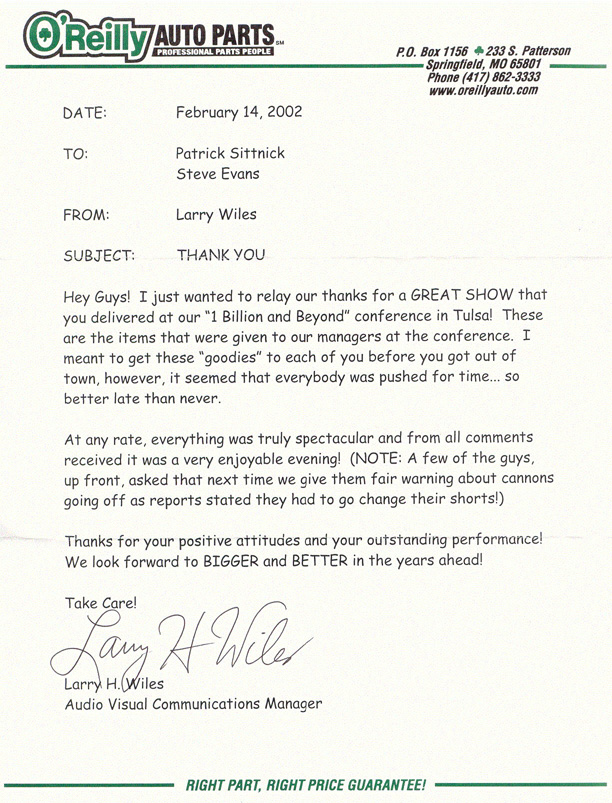 O'Reilly AUTO PARTS SM
PROFESSIONAL PARTS PEOPLE
P.O. Box 1156 ♣ 233 S. Patterson
Springfield, MO 65801
Phone (417) 862-3333
www.oreillyauto.com
DATE: February 14, 2002
TO: Patrick Sittnick
Steve Evans
FROM: Larry Wiles
SUBJECT: THANK YOU
Hey Guys! I just wanted to relay our thanks for a GREAT SHOW that
you delivered at our "1 Billion and Beyond" conference in Tulsa! These
are the items that were given to our managers at the conference. I
meant to get these "goodies" to each of you before you got out of
town, however, it seemed that everybody was pushed for time... so
better late than never.
At any rate, everything was truly spectacular and from all comments
received it was a very enjoyable evening! (NOTE: A few of the guys,
up front, asked that next time we give them fair warning about cannons
going off as reports stated they had to go change their shorts!)
Thanks for your positive attitudes and your outstanding performance!
We look forward to BIGGER and BETTER in the years ahead!
Take Care!
Larry H Wiles
Larry H. Wiles
Audio Visual Communications Manager
RIGHT PART, RIGHT PRICE GUARANTEE!